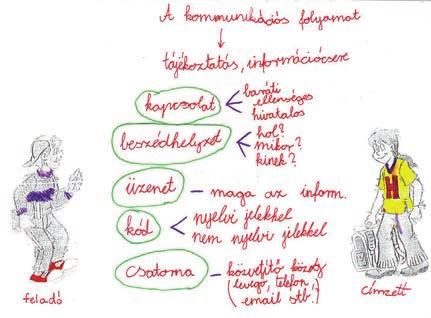 A kommunikációs folyamat
tájékoztatás, információcsere
kapcsolat
baráti
ellenséges
hivatalos
beszédhelyzet
hol?
mikor?
kinek?
üzenet – maga az inform.
kód
nyelvi jelekkel
nem nyelvi jelekkel
csatorna – közvetítő közeg
(levegő, telefon,
email stb.)
feladó
címzett
H